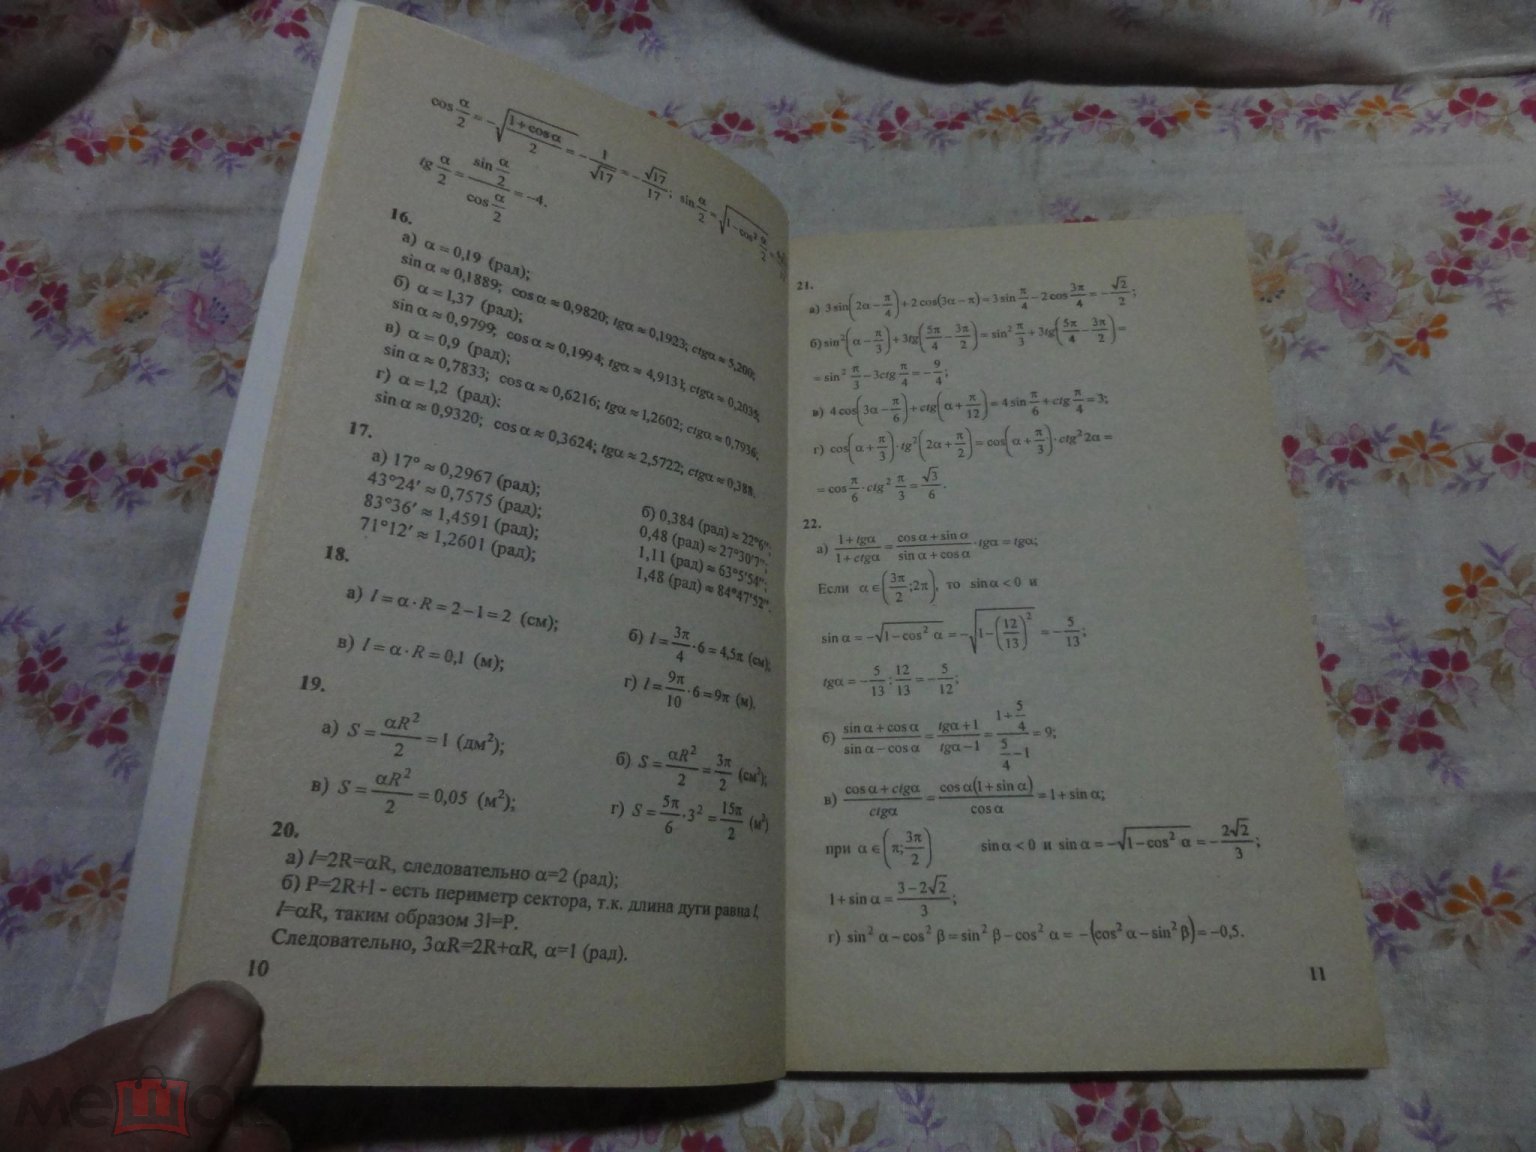 cos α/2 = −√((1+cos α)/2) = −1/√17 = −√17/17; sin α/2 = √(1−cos² α/2)
tg α/2 = (sin α/2)/(cos α/2) = −4.
16.
а) α = 0,19 (рад);
sin α ≈ 0,1889; cos α ≈ 0,9820; tgα ≈ 0,1923; ctgα ≈ 5,200;
б) α = 1,37 (рад);
sin α ≈ 0,9799; cos α ≈ 0,1994; tgα ≈ 4,9131; ctgα ≈ 0,2035;
в) α = 0,9 (рад);
sin α ≈ 0,7833; cos α ≈ 0,6216; tgα ≈ 1,2602; ctgα ≈ 0,7936;
г) α = 1,2 (рад):
sin α ≈ 0,9320; cos α ≈ 0,3624; tgα ≈ 2,5722; ctgα ≈ 0,388.
17.
а) 17° ≈ 0,2967 (рад);
43°24′ ≈ 0,7575 (рад);
83°36′ ≈ 1,4591 (рад);
71°12′ ≈ 1,2601 (рад);
б) 0,384 (рад) ≈ 22°6″;
0,48 (рад) ≈ 27°30′7″;
1,11 (рад) ≈ 63°5′54″;
1,48 (рад) ≈ 84°47′52″.
18.
а) l = α · R = 2 − 1 = 2 (см);
б) l = 3π/4 · 6 = 4,5π (см);
в) l = α · R = 0,1 (м);
г) l = 9π/10 · 6 = 9π (м).
19.
а) S = αR²/2 = 1 (дм²);
б) S = αR²/2 = 3π/2 (см²);
в) S = αR²/2 = 0,05 (м²);
г) S = 5π/6 · 3² = 15π/2 (м²)
20.
а) l=2R=αR, следовательно α=2 (рад);
б) P=2R+l - есть периметр сектора, т.к. длина дуги равна l,
l=αR, таким образом 3l=P.
Следовательно, 3αR=2R+αR, α=1 (рад).
10
21.
а) 3 sin(2α − π/4) + 2 cos(3α − π) = 3 sin π/4 − 2 cos 3π/4 = −√2/2;
б) sin²(α − π/3) + 3tg(5π/4 − 3π/2) = sin² π/3 + 3tg(5π/4 − 3π/2) =
= sin² π/3 − 3ctg π/4 = −9/4;
в) 4 cos(3α − π/6) + ctg(α + π/12) = 4 sin π/6 + ctg π/4 = 3;
г) cos(α + π/3) · tg²(2α + π/2) = cos(α + π/3) · ctg² 2α =
= cos π/6 · ctg² π/3 = √3/6.
22.
а) (1 + tgα)/(1 + ctgα) = (cos α + sin α)/(sin α + cos α) · tgα = tgα;
Если α ∈ (3π/2; 2π), то sin α < 0 и
sin α = −√(1 − cos² α) = −√(1 − (12/13)²) = −5/13;
tgα = −5/13 : 12/13 = −5/12;
б) (sin α + cos α)/(sin α − cos α) = (tgα + 1)/(tgα − 1) = (1 + 5/4)/(5/4 − 1) = 9;
в) (cos α + ctgα)/ctgα = cos α(1 + sin α)/cos α = 1 + sin α;
при α ∈ (π; 3π/2) sin α < 0 и sin α = −√(1 − cos² α) = −2√2/3;
1 + sin α = (3 − 2√2)/3;
г) sin² α − cos² β = sin² β − cos² α = −(cos² α − sin² β) = −0,5.
11
мешок